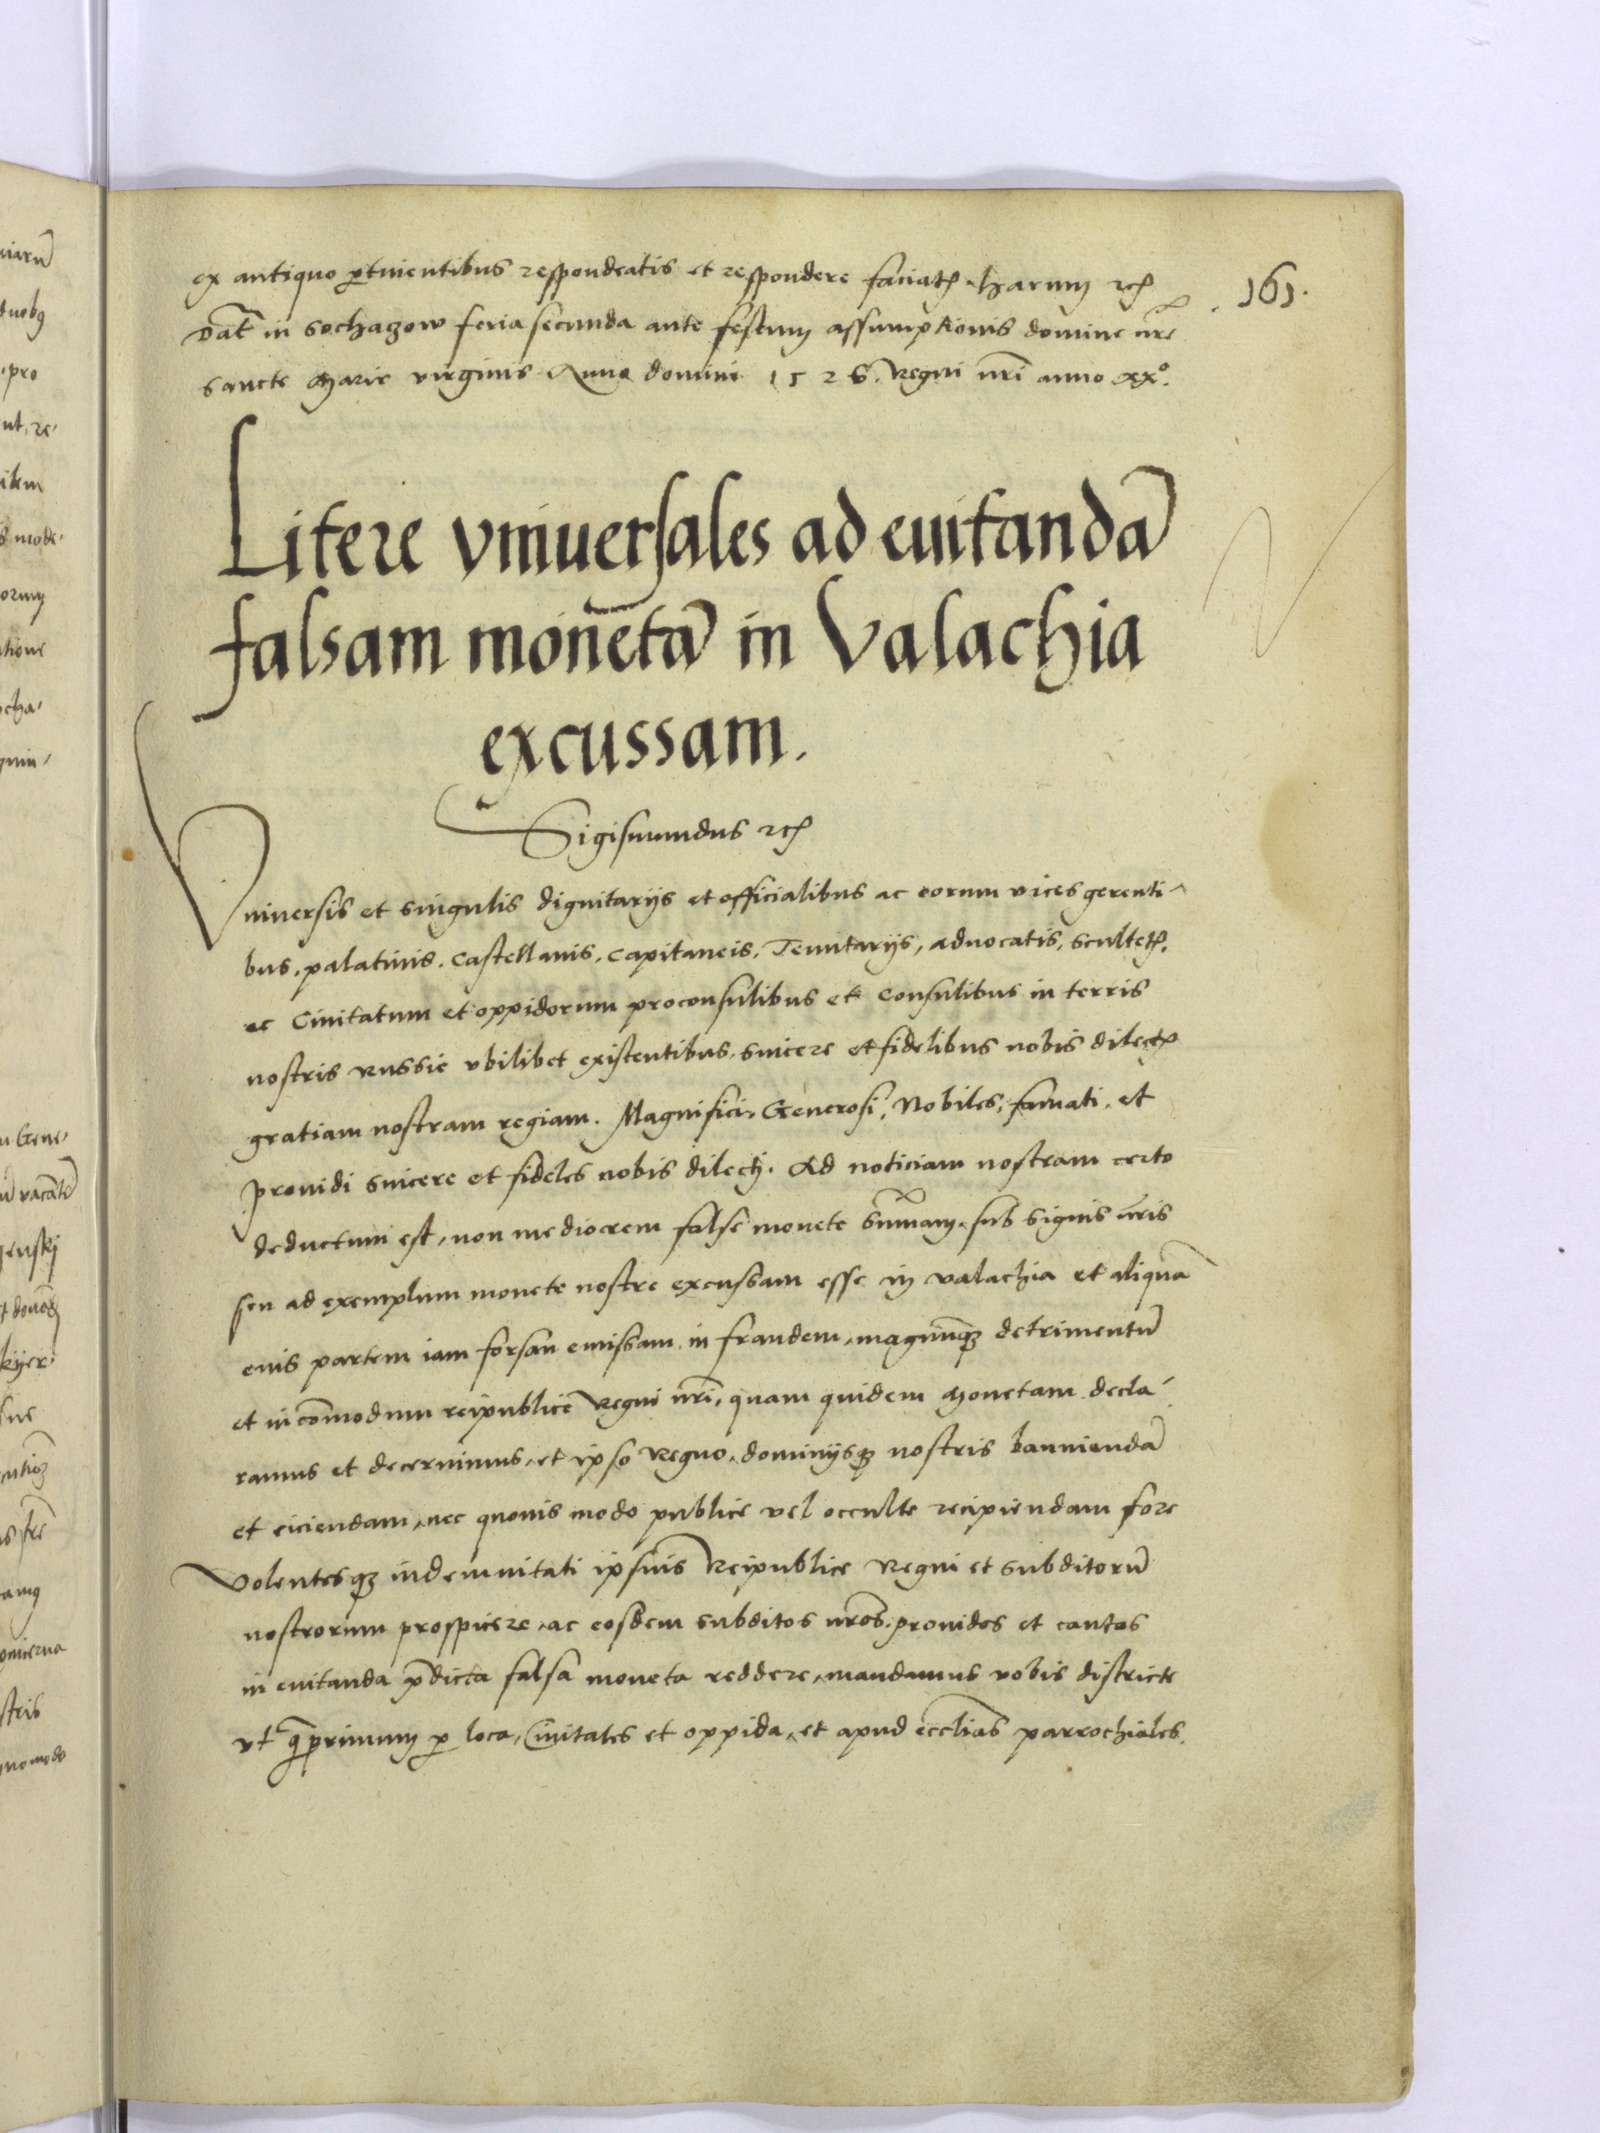 ex antiquo ꝑtinentibus respondeatis et respondere faciatꝭ. harum rcꝭ
161.
Dat̃ in Sochaczow feria secunda ante festum assumptionis domine nr̃e
Sancte Marie virginis Anno domini 1526. Regni nr̃i anno xx°.
Litere vniuersales ad euitandã
falsam monetã in Valachia
excussam.
Sigismundus rcꝭ
Vniuersis et singulis dignitarijs et officialibus ac eorum vices gerenti-
bus, palatinis, Castellanis, Capitaneis, Tenutarijs, aduocatis, scultetꝭ,
ac Ciuitatum et oppidorum proconsulibus et Consulibus in terris
nostris Russie vbilibet existentibus, sincere et fidelibus nobis dilectꝭ
gratiam nostram regiam. Magnifici, Generosi, Nobiles, famati, et
prouidi sincere et fideles nobis dilecti. Ad noticiam nostram certo
deductum est, non mediocrem false monete sum̃am, sub signis nr̃is
seu ad exemplum monete nostre excussam esse in valachia et aliquã
eius partem iam forsan emissam in fraudem, magnumqꝫ detrimentũ
et incõmodum reipublice Regni nr̃i, quam quidem Monetam decla-
ramus et decernimus, et ipso Regno, dominijsqꝫ nostris banniendã
et eiciendam, nec quouis modo publice vel occulte recipiendam fore
Volentesqꝫ indemnitati ipsius Reipublice Regni et subditorũ
nostrorum prospicere, ac eosdem subditos nr̃os prouidos et cautos
in euitanda p̃dicta falsa moneta reddere, mandamus vobis districte
vt q̃primum ꝑ loca, Ciuitates et oppida, et apud eccl̃ias parrochiales